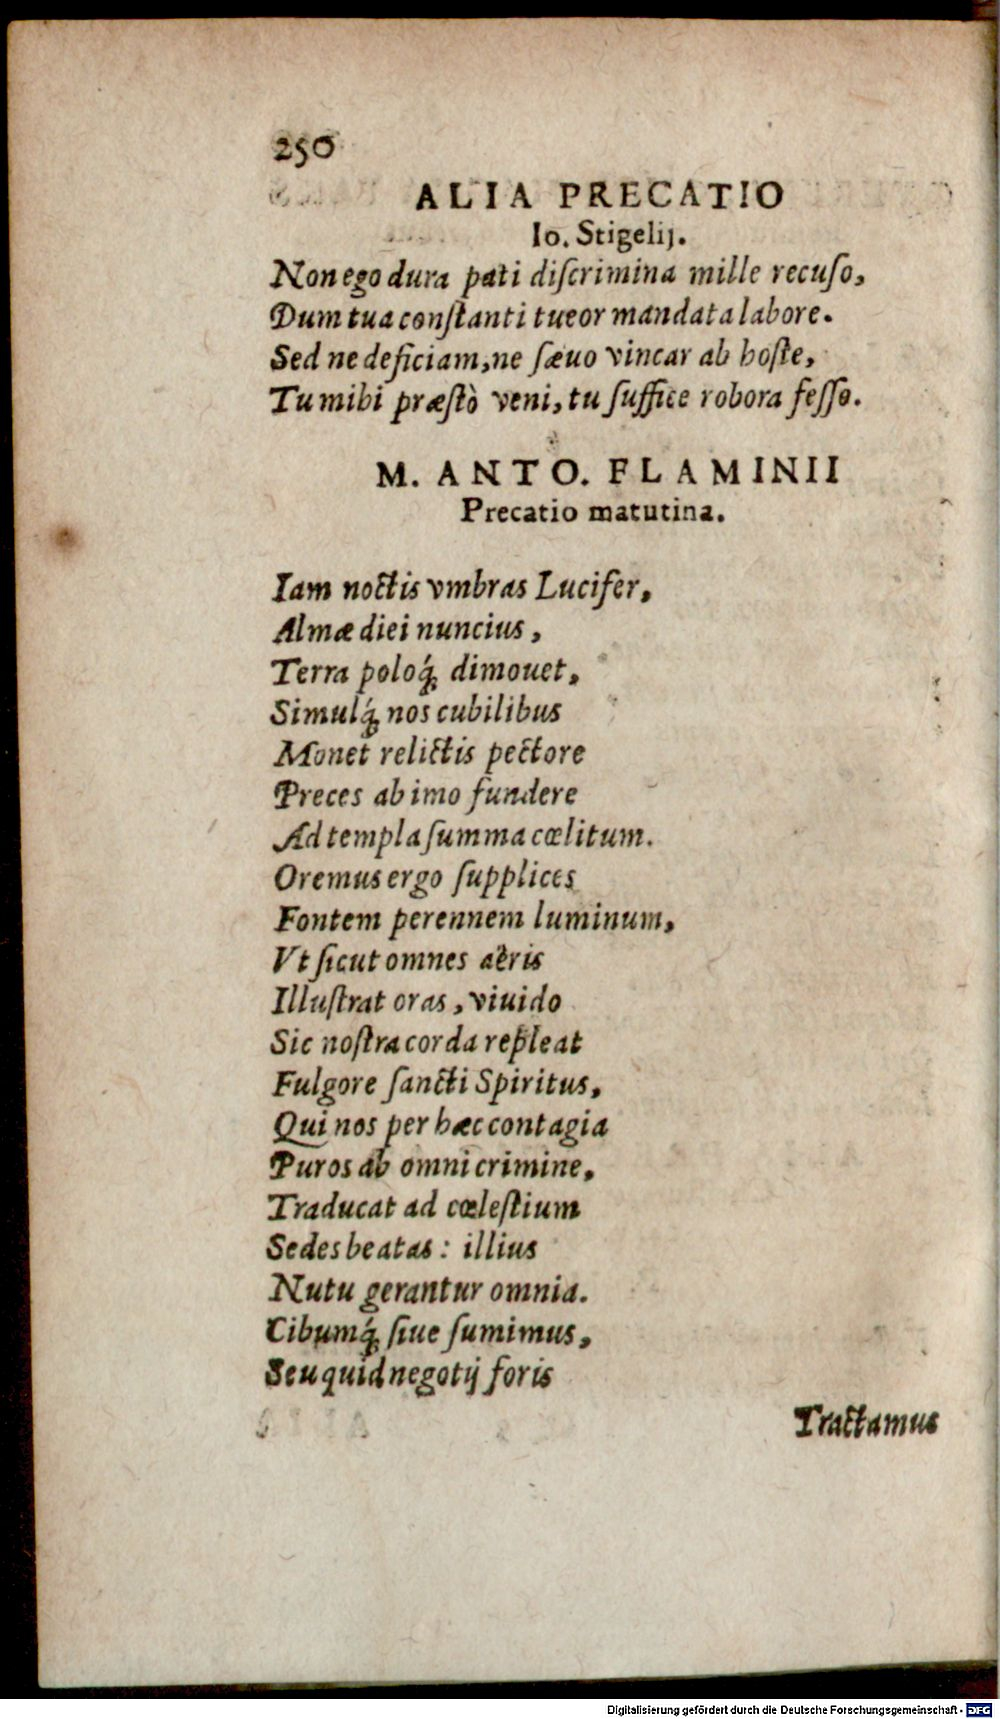 250
ALIA PRECATIO
Io. Stigelij.
Non ego dura pati diſcrimina mille recuſo,
Dum tua conſtanti tueor mandata labore.
Sed ne deficiam, ne ſæuo vincar ab hoſte,
Tu mihi præſtò veni, tu ſuffice robora feſſo.
M. ANTO. FLAMINII
Precatio matutina.
Iam noctis vmbras Lucifer,
Almæ diei nuncius,
Terra poloq́ꝫ dimouet,
Simulq́ꝫ nos cubilibus
Monet relictis pectore
Preces ab imo fundere
Ad templa ſumma cœlitum.
Oremus ergo ſupplices
Fontem perennem luminum,
Vt ſicut omnes aëris
Illuſtrat oras, viuido
Sic noſtra corda repleat
Fulgore ſancti Spiritus,
Qui nos per hæc contagia
Puros ab omni crimine,
Traducat ad cœleſtium
Sedes beatas: illius
Nutu gerantur omnia.
Cibumq́ꝫ ſiue ſumimus,
Seu quid negotij foris
Tractamus
Digitalisierung gefördert durch die Deutsche Forschungsgemeinschaft - DFG